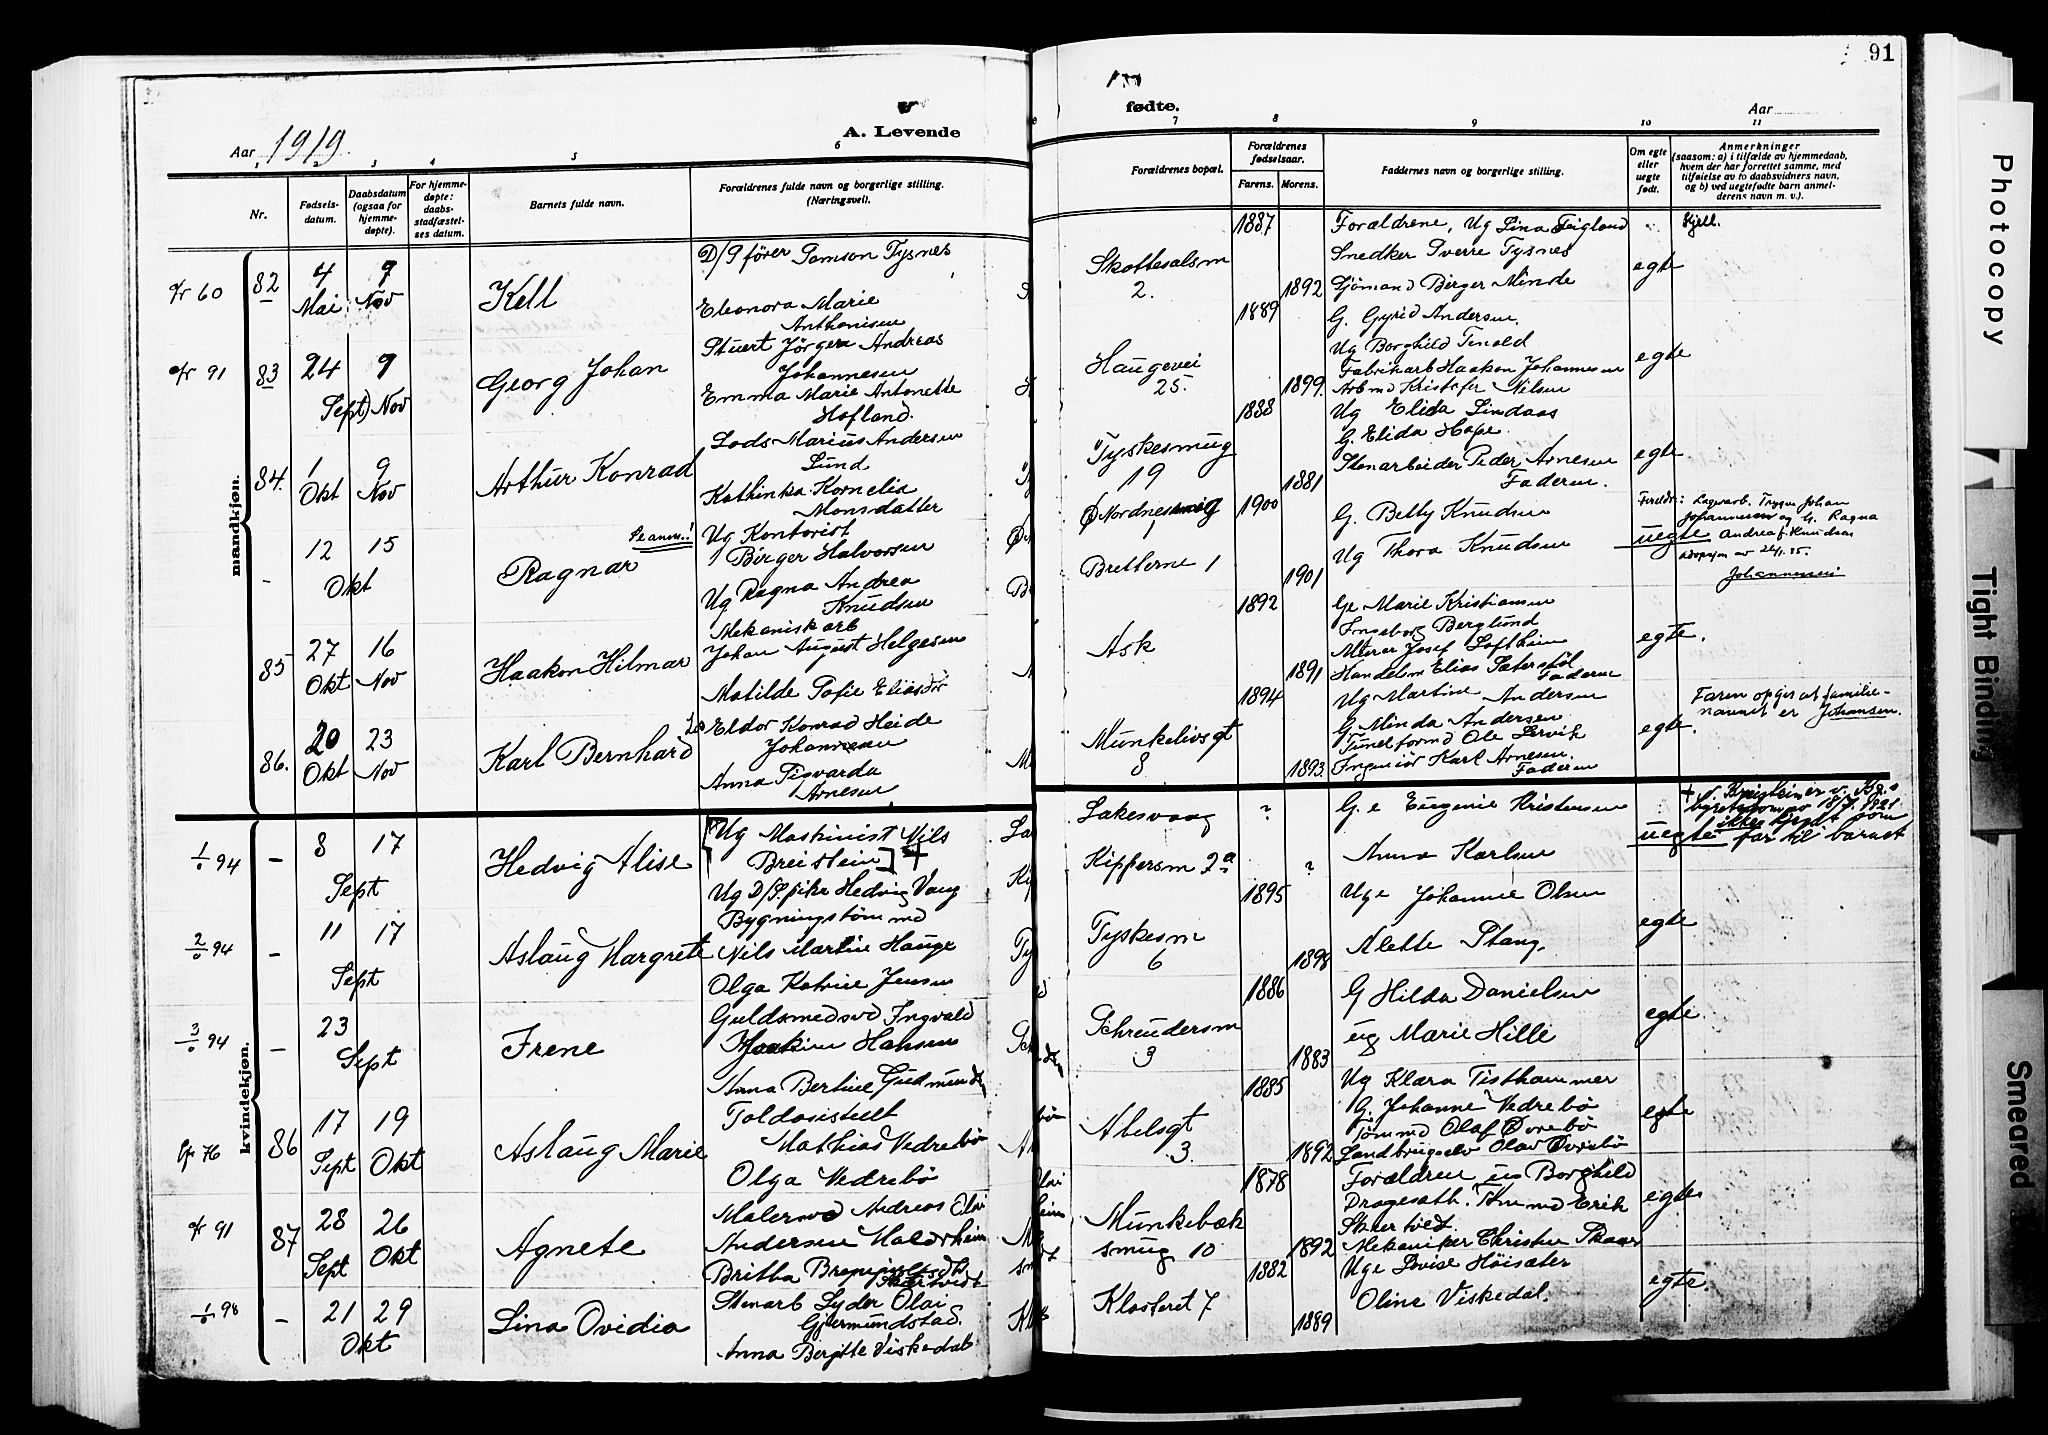 91
A. Levende
fødte.
Aar 1919.
Aar
1 2 3 4 5 6
7 8 9 10 11
Nr.
Fødsels-
datum.
Daabsdatum
(ogsaa for
hjemme-
døpte).
For hjemme-
døpte:
daabs-
stadfæstel-
ses datum.
Barnets fulde navn.
Forældrenes fulde navn og borgerlige stilling.
(Næringsvei).
Forældrenes bopæl.
Forældrenes
fødselsaar.
Farens. Morens.
Faddernes navn og borgerlige stilling.
Om egte
eller
uegte
født.
Anmerkninger
(saasom: a) i tilfælde av hjemmedaab,
hvem der har forrettet samme, med
tilføielse av to daabsvidners navn,
og b) ved uegtefødte barn anmel-
derens navn m. v.).
mandkjøn.
fr 60 82 4 Mai 9 Nov Kell
D/S fører Samson Tysnes
Eleonora Marie
Anthonisen
Skottesalsm
2.
1887
1892
Forældrene, Ug Lina Feigland
Snedker Sverre Tysnes
Sjömand Birger Minde
egte
Kjell.
fr 91 83 24 Sept 9 Nov Georg Johan
Stuert Jörgen Andreas
Johannesen
Emma Marie Antonette
Hofland.
Haugevei
25.
1889
1899.
G. Gyrid Andersen.
Ug Borghild Tenold
Fabrikarb Haakon Johannesen
Arbmd Kristofer Nilsen
egte
84. 1 Okt 9 Nov Arthur Konrad
Lods Marius Andersen
Lund
Kathinka Kornelia
Monsdatter
Tyskesmug
19
1888
1881
Ug Elida Lindaas
G. Elida Hope.
Stenarbeider Peder Arnesen
Faderen.
egte
- 12 15 Okt Ragnar
Se anm.!
Ug Kontorist
Birger Halvorsen
Ug Ragna Andrea
Knudsen
Ø Nordnesmug
1
Bretterne 1
1900
1901
G. Betty Knudsen
Ug Thora Knudsen
uegte
Foreldr.: Lagerarb. Trygve Johan
Johannesen og h. Ragna
Andrea f. Knudsen
Johannesen
85 27 Okt 16 Nov Haakon Hilmar
Mekanisk arb
Johan August Helgesen
Matilde Sofie Eliasdr
Ask
1892
1891
Ge Marie Kristiansen
Ingeborg Berglund
Murer Josef Loftheim
Handelsm Elias Sætersdøl
Faderen
egte.
86. 20 Okt 23 Nov Karl Bernhard
Eldor Konrad Heide
Johannesen
Anna Sigvarda
Arnesen
Munkelivsgt
8
1894
1893.
Ug Martine Andersen
G. Minda Andersen
Tunelformd Ole Lervik
Ingeniör Karl Arnesen
Faderen
egte.
Faren opgir at familie-
navnet er Johansen.
kvindekjøn.
1/0 94 - 8 17 Sept Hedvig Alise
[Ug Maskinist Nils
Breistein] +
Ug D/S. pike Hedvig Vang
Laksevaag
Kippersm 2a
?
?
G. e Eugenie Kristensen
Anna Karlsen
uegte
ikke kjendt som
far til barnet
2/0 94 - 11 17 Sept Aslaug Margrete
Bygningstømmd
Nils Martin Hauge
Olga Katrine Jensen
Tyskesm
6
1895
1898
Ug e Johanne Olsen
Alette Stang.
egte
3/0 94 - 23 Sept Irene
Guldsmedsvd Ingvald
Joakim Hansen
Anna Bertine Gudmundsdt
Schreudersm
3
1886
1883
G Hilda Danielsen
ug Marie Hille
egte
fr 76 86 17 Sept 19 Okt Aslaug Marie
Toldassistent
Mathias Vedrebö
Olga Vedrebö
Abelsgt
3.
1885
1892
Ug Klara Tisthammer
G. Johanne Vedrebö
Tømmd Olaf Övrebö
Landbrugselev Olav Övrebö
egte
fr 91 87 28 Sept 26 Okt Agnete
Malersvd Andreas Olai
Andersen Haldorheim
Munkebæk
smug 10
1878
1892
Forældren ug Borghild
Mekaniker Christen Skaar
egte
1/0 98 - 21 29 Okt Lina Ovidia
Stenarb Lyder Olai
Gjermundstad.
Anna Bergitte Viskedal
Klosteret 7
1882
1889
Ug e Lovise Höisæter
Oline Viskedal.
egte.
Photocopy
Tight Binding
Smeared